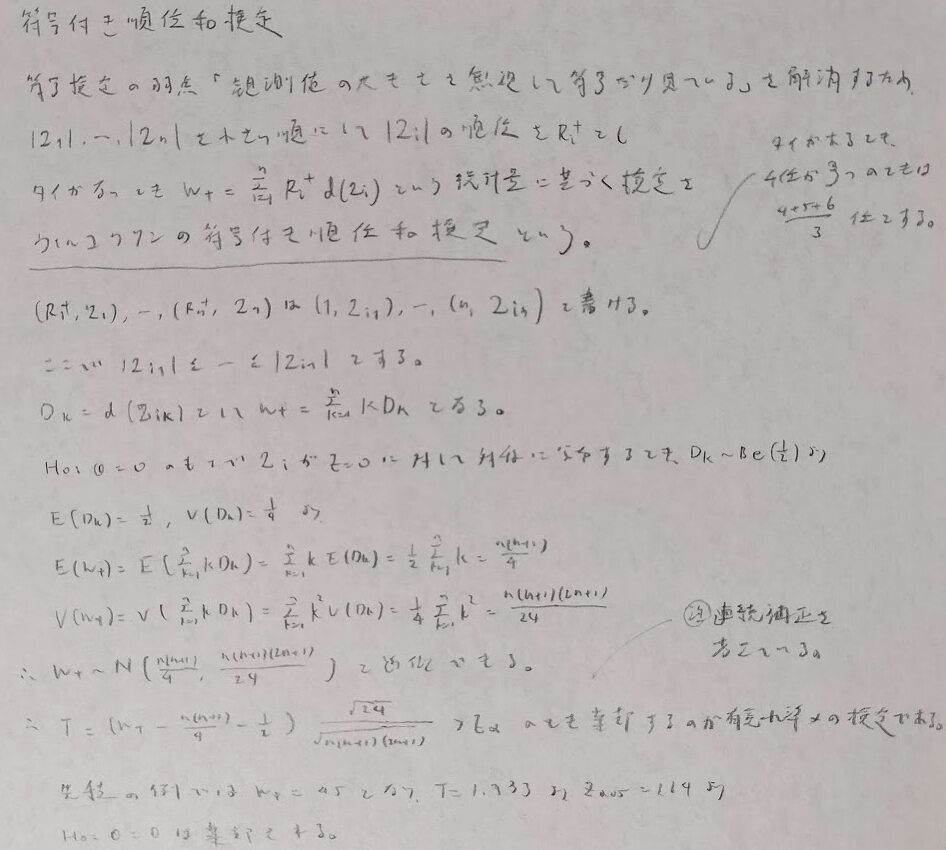 符号付き順位和検定
符号検定の弱点「観測値の大きさを無視して符号だけ見ている」を解消するため、
|Z₁|, …, |Zₙ| を小さい順にして |Zᵢ| の順位を Rᵢ⁺ とし
タイがあっても W₊ = Σᵢ₌₁ⁿ Rᵢ⁺ d(Zᵢ) という統計量に基づく検定を
ウィルコクソンの符号付き順位和検定 という。
タイがあるとき、
4位が3つのときは
(4+5+6)/3 位とする。
(R₁⁺, Z₁), …, (Rₙ⁺, Zₙ) は (1, Zᵢ₁), …, (n, Zᵢₙ) と書ける。
ここで |Zᵢ₁| ≤ … ≤ |Zᵢₙ| とする。
Dₖ = d(Zᵢₖ) として W₊ = Σₖ₌₁ⁿ kDₖ となる。
H₀: θ=0 のもとで Zᵢ が Z=0 に対して対称に分布するとき、Dₖ ~ Be(1/2) より
E(Dₖ) = 1/2, V(Dₖ) = 1/4 より
E(W₊) = E(Σₖ₌₁ⁿ kDₖ) = Σₖ₌₁ⁿ k E(Dₖ) = 1/2 Σₖ₌₁ⁿ k = n(n+1)/4
V(W₊) = V(Σₖ₌₁ⁿ kDₖ) = Σₖ₌₁ⁿ k² V(Dₖ) = 1/4 Σₖ₌₁ⁿ k² = n(n+1)(2n+1)/24
∴ W₊ ~ N(n(n+1)/4, n(n+1)(2n+1)/24) と近似できる。
注 連続補正を
考えている。
∴ T = (W₊ - n(n+1)/4 - 1/2) √24/√n(n+1)(2n+1) > Zα のとき棄却するのが有意水準αの検定である。
の例では W₊ = 45 となり、T = 1.733 より Z₀.₀₅ = 1.64 より
H₀: θ = 0 は棄却される。